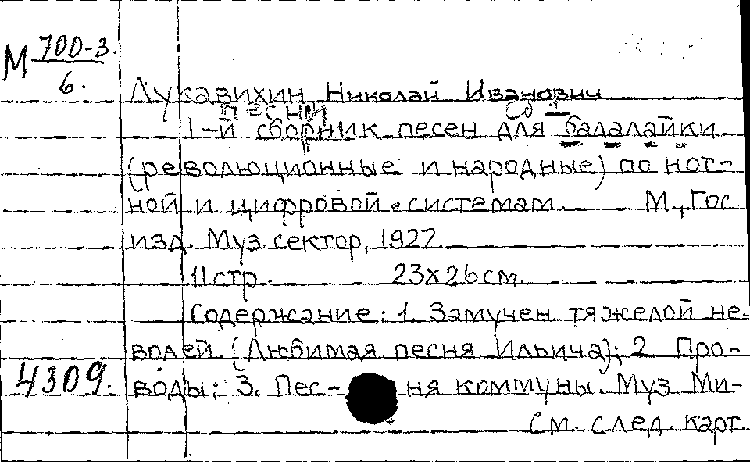 М 700-3.
6.
Лукавихин Николай Иванович
Песни Сб. I
1-й сборник песен для балалайки
(революционные и народные) по нот-
ной и цифровой системам. М., Гос
изд. Муз. сектор, 1927.
11 стр. 23х26 см.
Содержание: 1. Замучен тяжелой не-
волей. (Любимая песня Ильича); 2 Про-
4309. воды; 3. Пес- ня коммуны. Муз Ми-
См. след. карт.